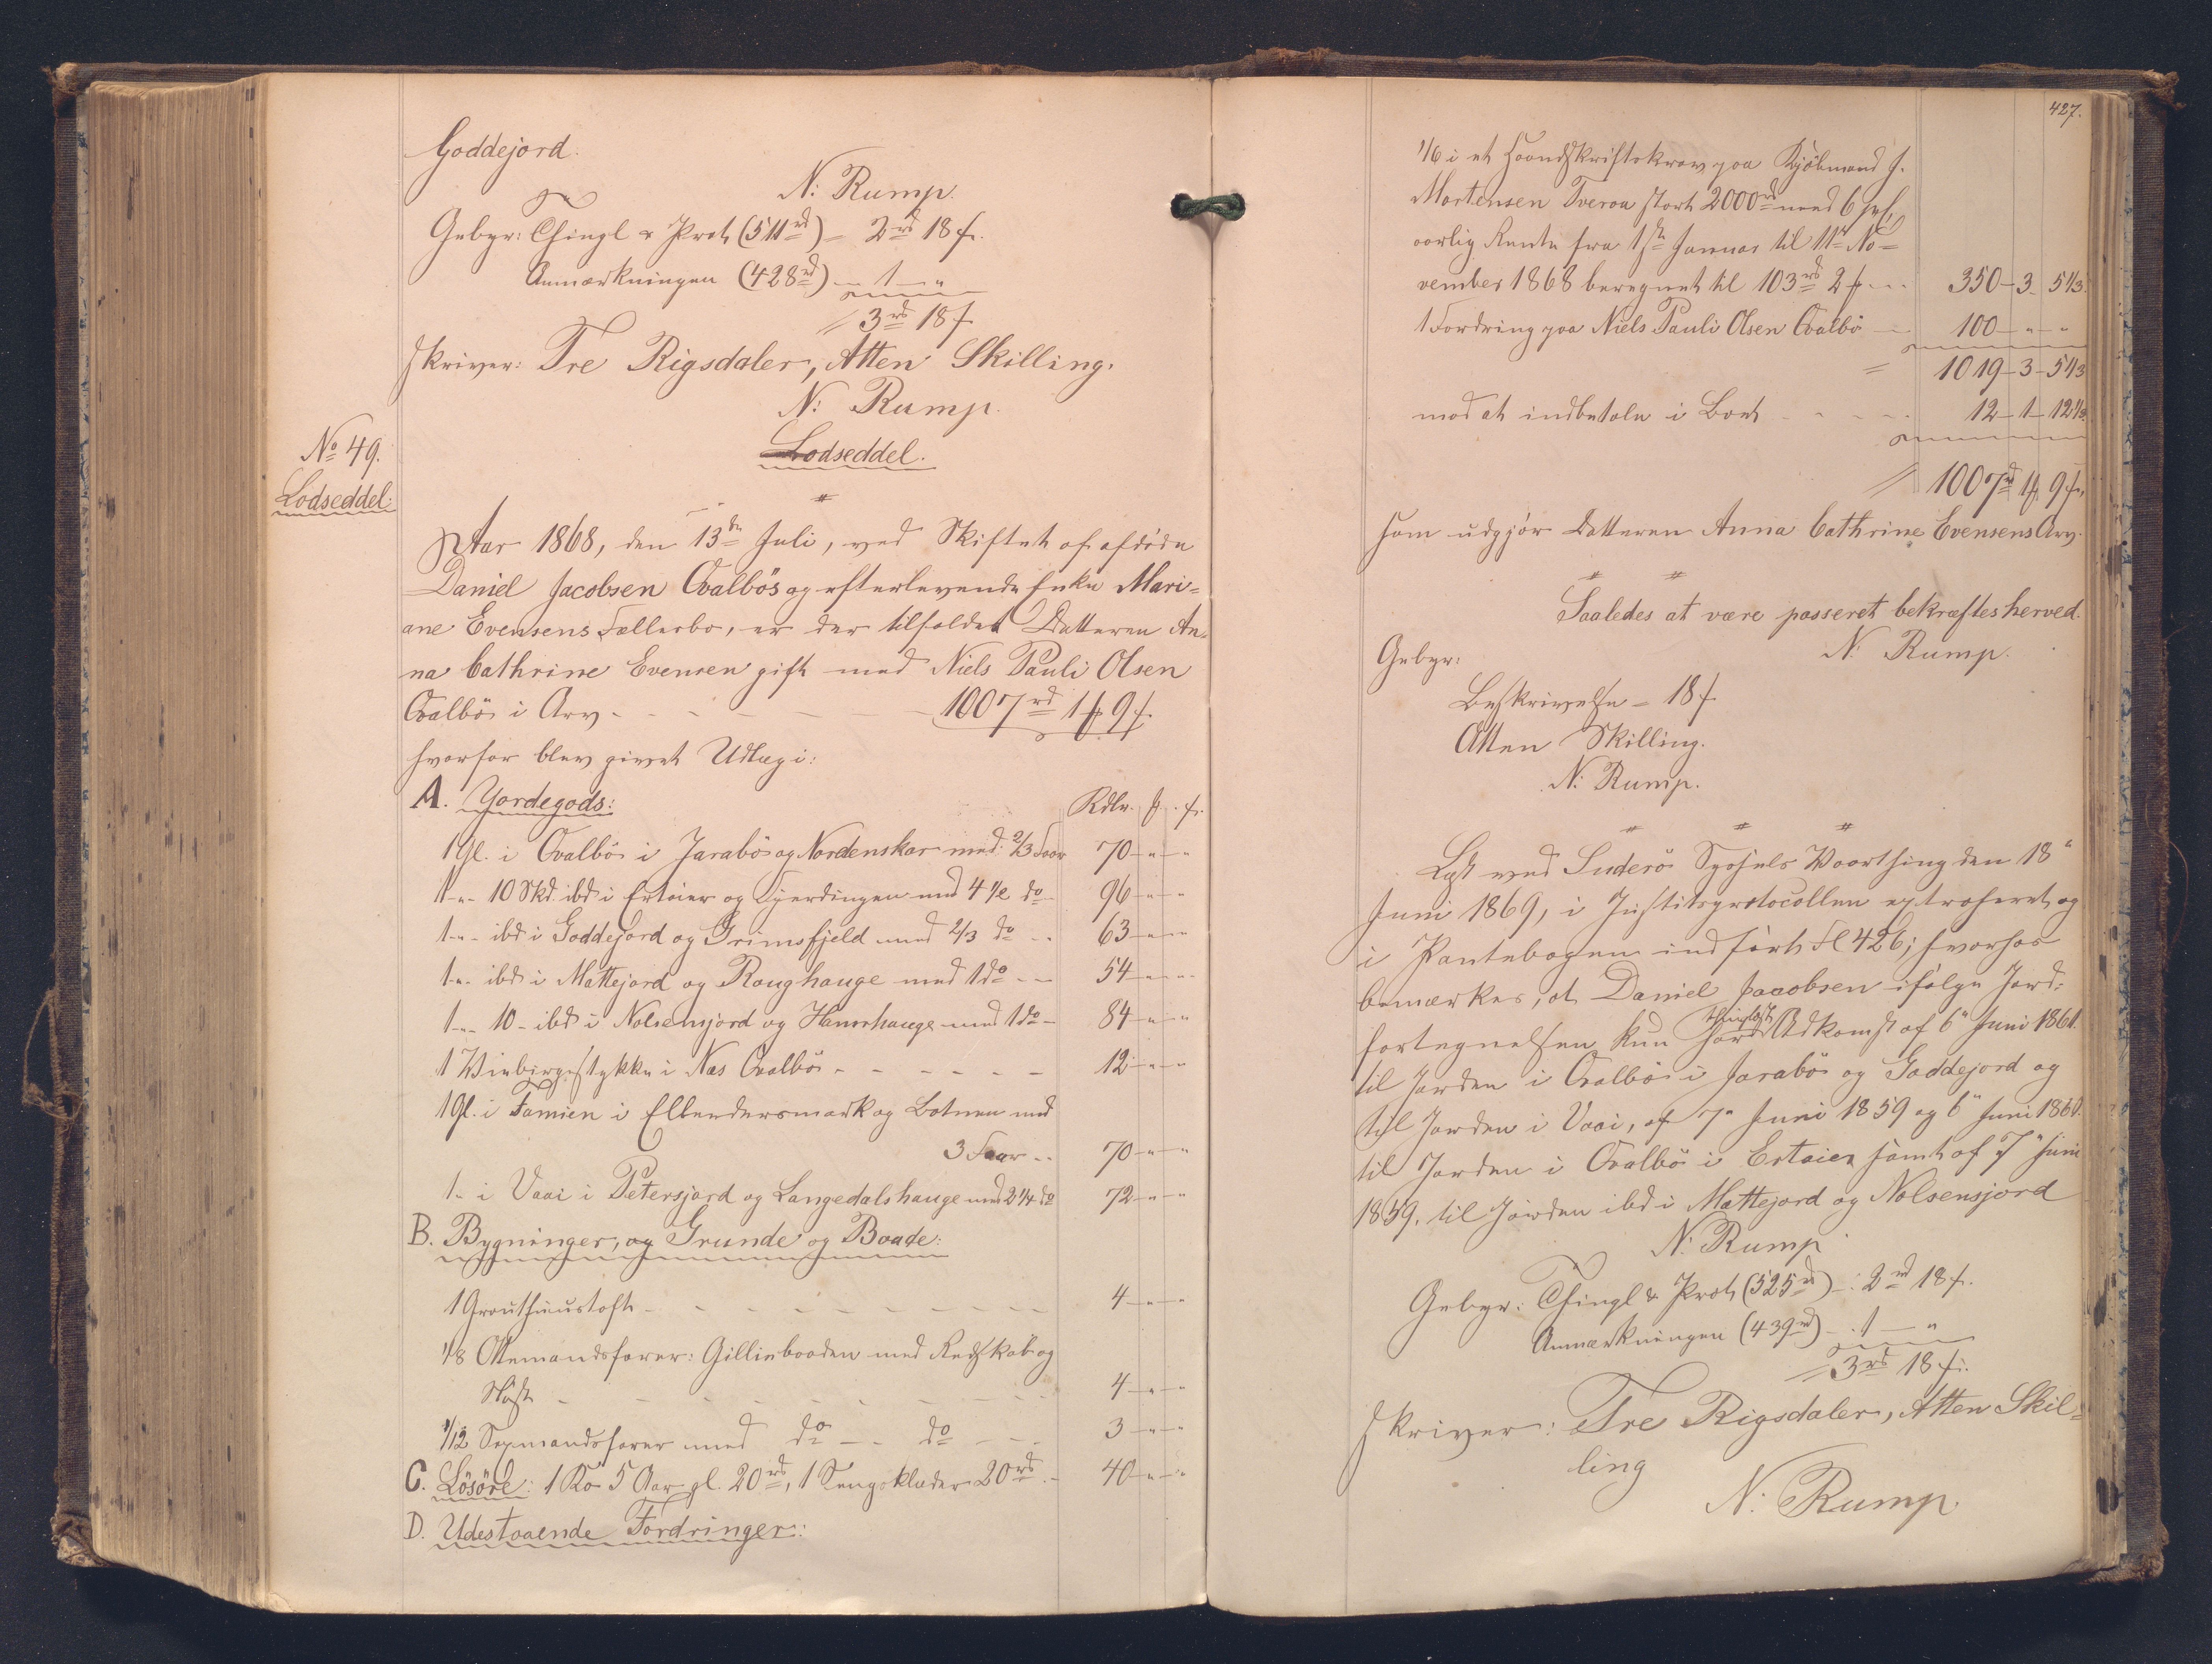 Goddejord.
N: Rump.
Gebyr: Thingl & Prot (511 rd) = 2 rd 18 s.
Anmærkningen (428 rd) - 1 - "
= 3 rd 18 s
skriver: Tre Rigsdaler, Atten Skilling.
N: Rump.
Lodseddel.
No 49.
Lodseddel:
Aar 1868, den 13de Juli, ved Skiftet af afdöde
Daniel Jacobsen Qvalbös og efterlevende Enke Mari=
ane Evensens Fællesbo, er der tilfaldet Datteren An=
na Cathrine Evensen gift med Niels Pauli Olsen
Qvalbö i Arv - - - 1007 rd 1 # 9 s.
hvorfor blev givet Udlæg i:
A. Jordegods:
Rdlr. # s.
1 Gl. i Qvalbö i Jarabö og Nordenskar med 2/3 Faar 70 - " - "
1 - " - 10 Skd. ibd i Ertoier og Fjerdingen med 4 1/2 do 96 - " - "
1 - " - ibd i Goddejord og Grimsfjeld med 2/3 do - - 63 - " - "
1 - " - ibd i Mattejord og Roughauge med 1 do - - 54 - " - "
1 - " - 10 - ibd i Nolsensjord og Hamrhauge med 1 do - 84 - " - "
1 Winbirgestykke i Næs Qvalbö - - - 12 - " - "
1 Gl. i Famien i Ellendersmark og Botnen med
3 Faar - - 70 - " - "
1 - i Vaai i Petersjord og Langedalshauge med 2 1/4 do 72 - " - "
B. Bygninger, og Grunde og Baade:
1 Grouthuustoft - - - 4 - " - "
1/8 Ottemandsfarer: Gillinbaaden med Redskab og
Nöst - - - 4 - " - "
1/12 Sexmandsfarer med do - - do - - 3 - " - "
C. Lösöre: 1 Ko 5 Aar gl. 20 rd, 1 Sengeklæder 20 rd - 40 - " - "
D. Udestaaende Fordringer:
427.
1/6 i et Haandskriftskrav paa Kjöbmand J.
Mortensen Tveraa stort 2000 rd med 6 pCt,
aarlig Rente fra 1ste Januar til 11te No=
vember 1868 beregnet til 103 rd 2 # - - 350 - 3 - 5 1/3
1 Fordring paa Niels Pauli Olsen Qvalbö - 100 - " - "
= 1019 - 3 - 5 1/3
mod at indbetale i Boet - - - 12 - 1 - 12 1/3
= 1007 rd 1 # 9 s.
som udgjör Datteren Anna Cathrine Evensens Arv.
Saaledes at være passeret bekræftes herved.
N: Rump.
Gebyr:
Beskrivelse = 18 s
Atten Skilling.
N: Rump.
Læst ved Suderö Syssels Vaarthing den 18"
Juni 1869, i Justitsprotocollen extraheret og
i Pantebogen indfört Fl 426; hvorhos
bemærkes, at Daniel Jacobsen ifölge Jord=
fortegnelsen kun har thinglæst Adkomst af 6" Juni 1861.
til Jorden i Qvalbö i Jarabö og Goddejord og
til Jorden i Vaai, af 7" Juni 1859 og 6" Juni 1861.
til Jorden i Qvalbö i Ertoier samt af 7" Juni
1859. til Jorden ibd i Mattejord og Nolsensjord
N: Rump
Gebyr: Thingl & Prot (525 rd) -: 2 rd 18 s.
Anmærkningen (439 rd) - 1 - "
= 3 rd 18 s.
skriver: Tre Rigsdaler, Atten Skil=
ling
N: Rump